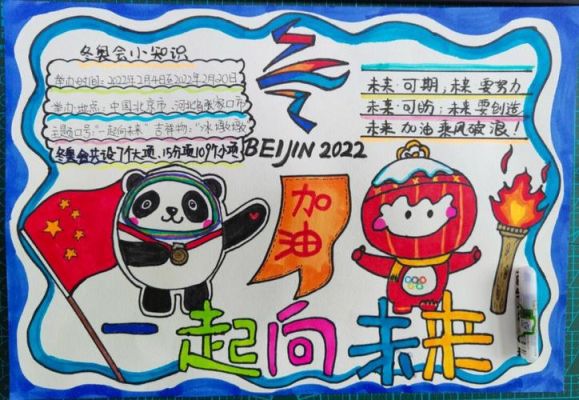 冬奥会小知识
举办时间：2022年2月4日至2022年2月20日
举办地点：中国北京市、河北省张家口市
主题口号："一起向未来"吉祥物："冰墩墩
冬奥会共设7个大项，15分项109个小项
BEIJIN 2022
未来·可期，未来要努力
未来·可盼；未来要创造
未来加油乘风破浪！
加油
一起向未来